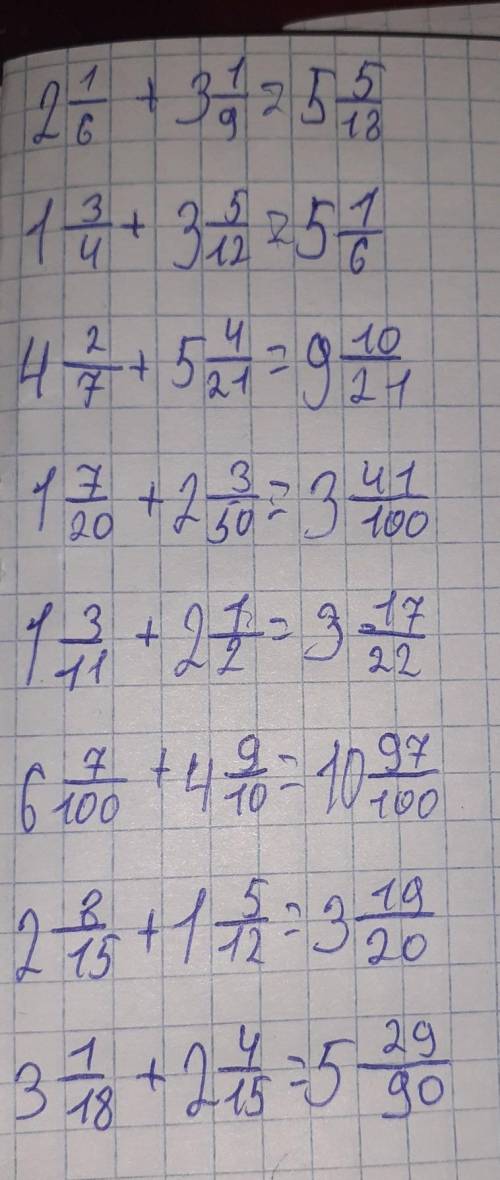 2 1/6 + 3 1/9 = 5 5/18
1 3/4 + 3 5/12 = 5 1/6
4 2/7 + 5 4/21 = 9 10/21
1 7/20 + 2 3/50 = 3 41/100
1 3/11 + 2 1/2 = 3 17/22
6 7/100 + 4 9/10 = 10 97/100
2 8/15 + 1 5/12 = 3 19/20
3 1/18 + 2 4/15 = 5 29/90